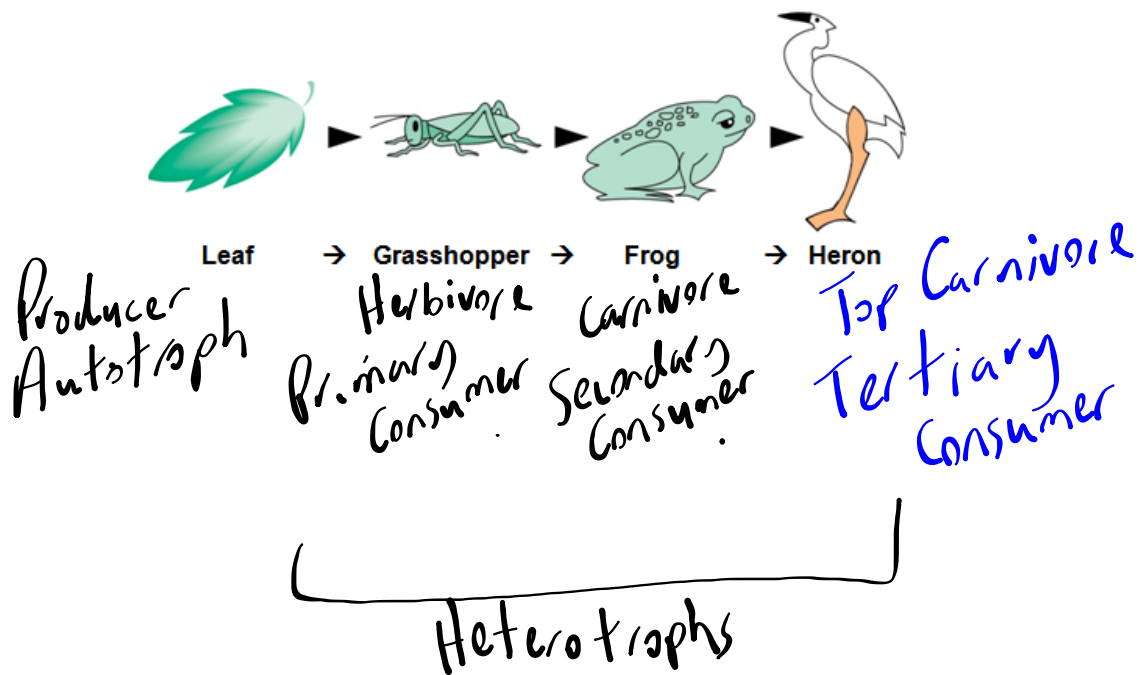 Leaf → Grasshopper → Frog → Heron
Producer
Autotroph
Herbivore
Primary
Consumer
Carnivore
Secondary
Consumer
Top Carnivore
Tertiary
Consumer
Heterotrophs